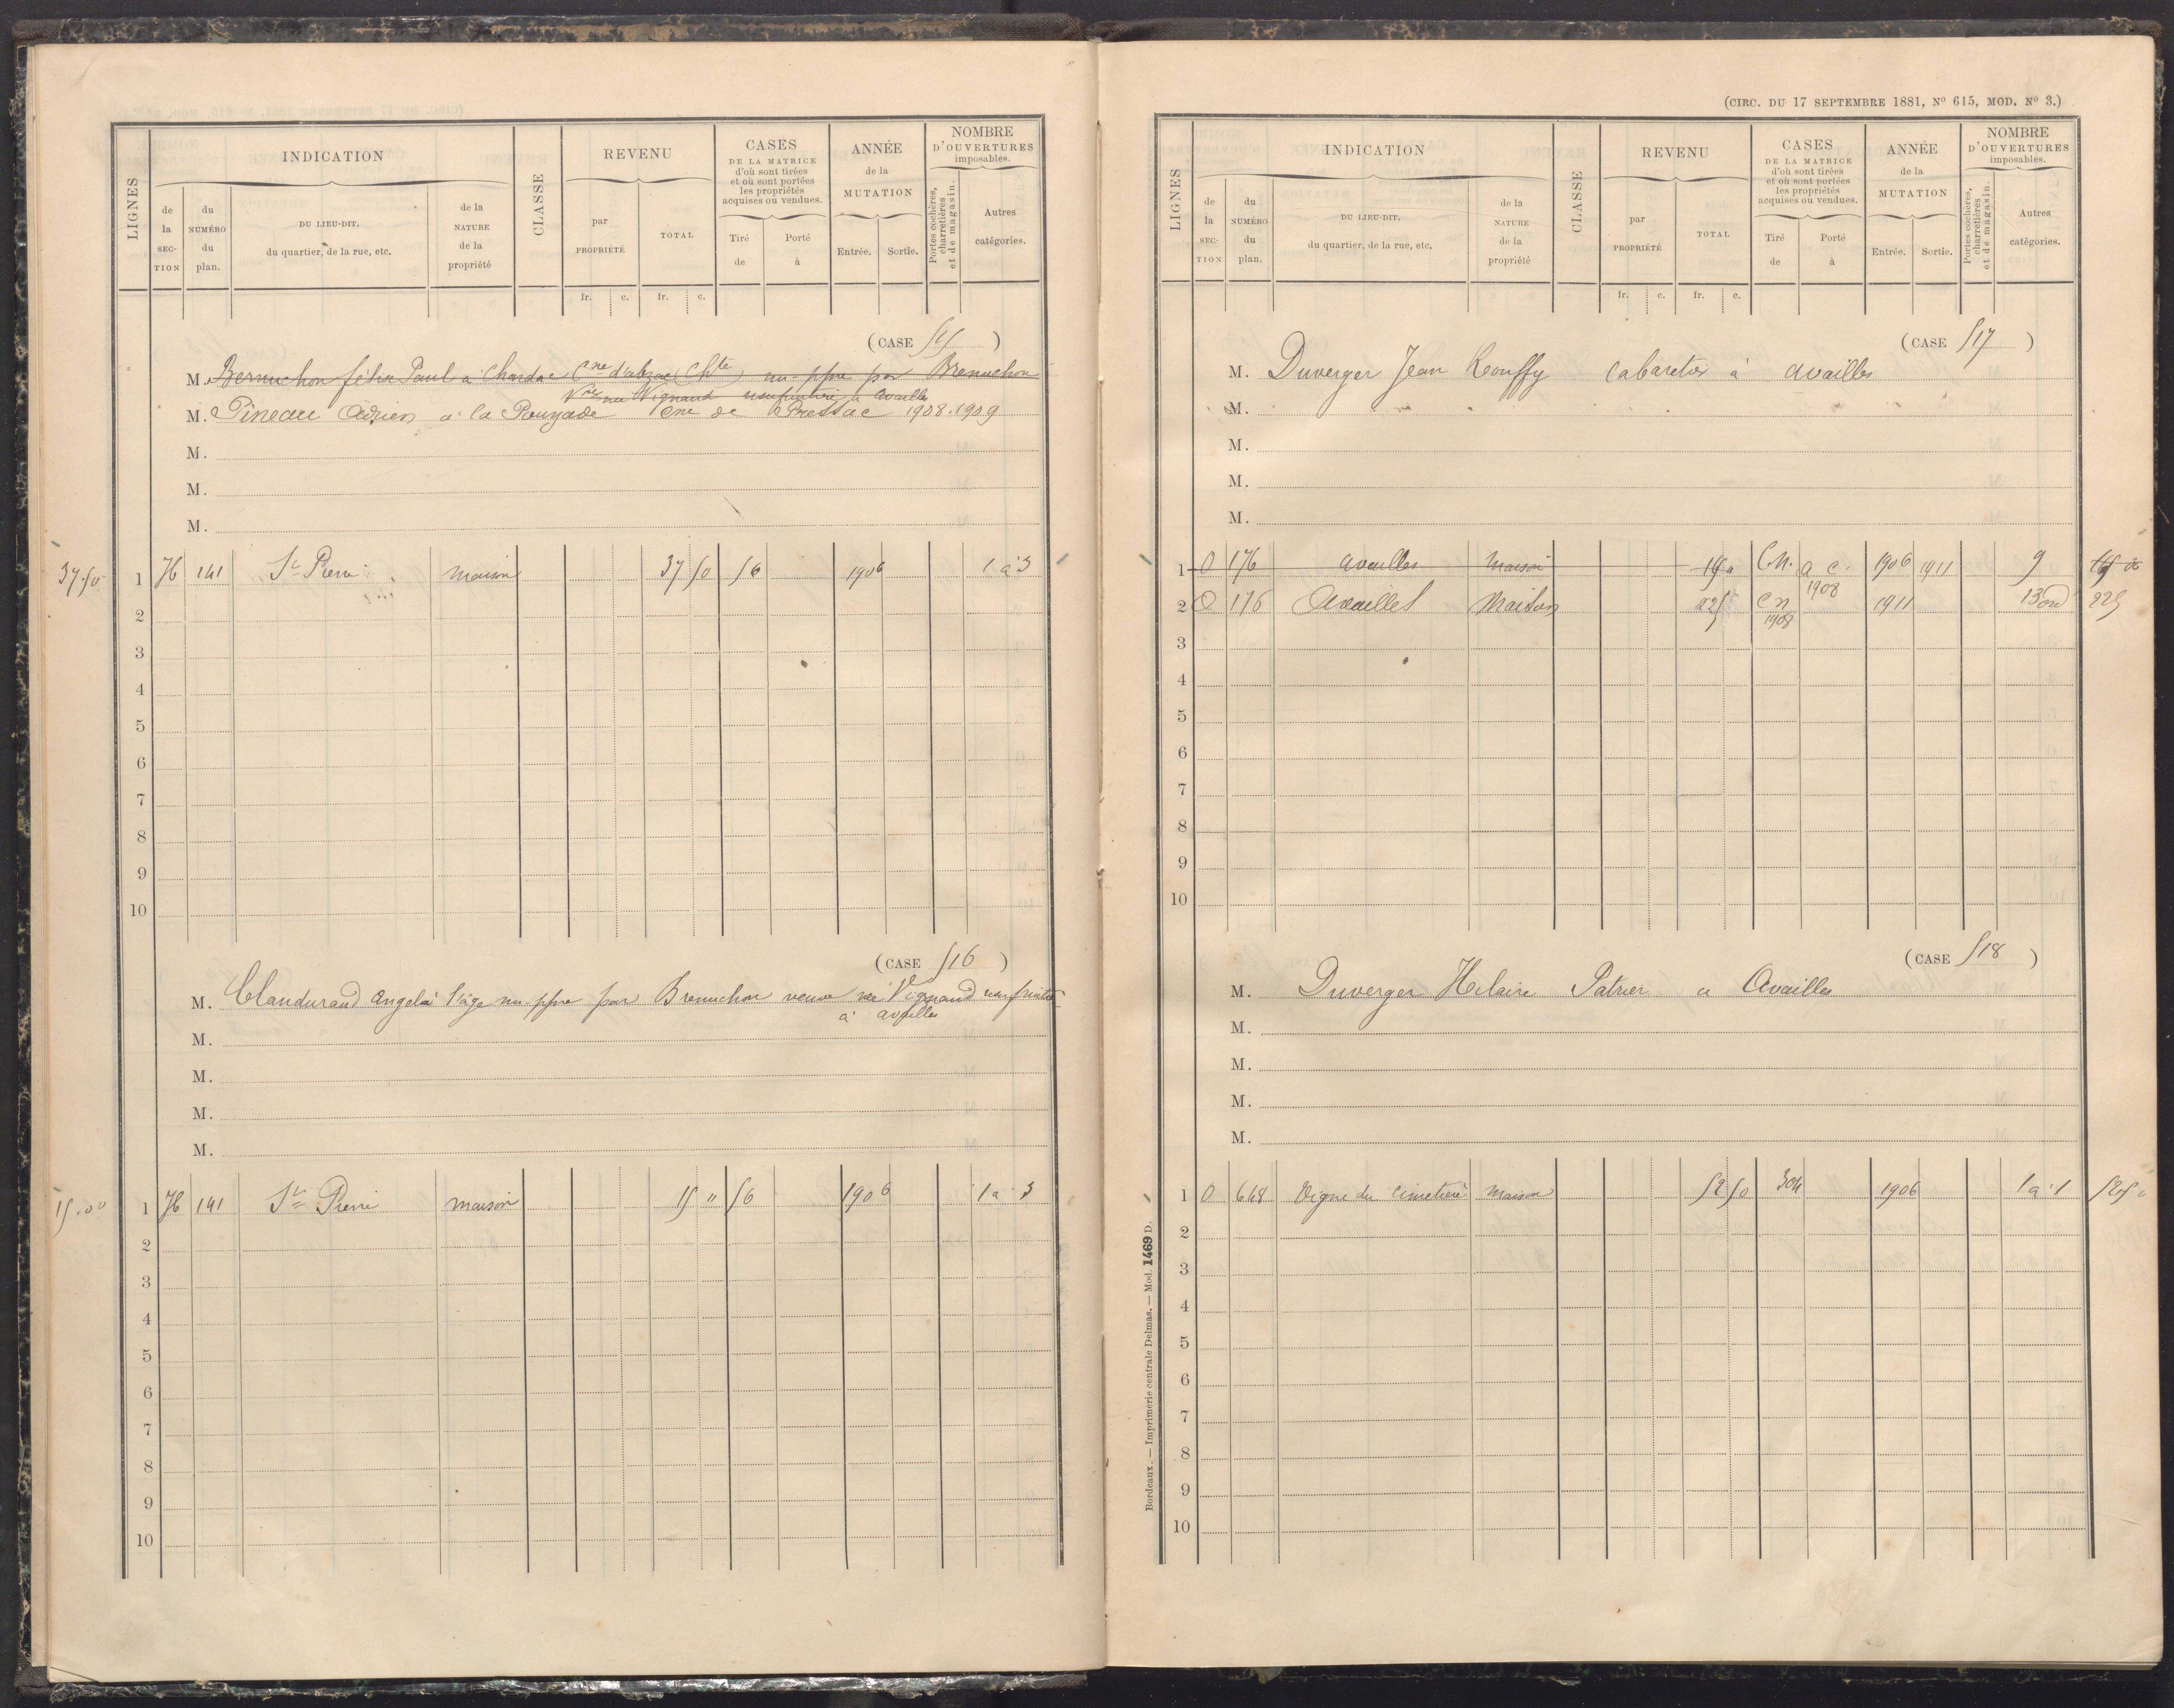 INDICATION
de la SECTION
du NUMÉRO du plan.
DU LIEU-DIT, du quartier, de la rue, etc.
de la NATURE de la propriété
LIGNES
CLASSE
REVENU
par PROPRIÉTÉ
TOTAL
fr. c. fr. c.
CASES DE LA MATRICE d'où sont tirées et où sont portées les propriétés acquises ou vendues.
Tiré de
Porté à
ANNÉE de la MUTATION
Entrée. Sortie.
NOMBRE D'OUVERTURES imposables.
Portes cochères, charretières et de magasin.
Autres catégories.
(CASE 515)
M. Brenuchon félix Paul à Chardac Cne d'abzac (Chte) nu-ppre par Brenuchon
Vve née Vignaud usufruitière à Availles
M. Pineau Adrien a la Rouzade Cne de Pressac 1908.1909
M.
M.
M.
37.50 1 H 141 St Pierre maison 37 50 56 1906 1 à 3
2
3
4
5
6
7
8
9
10
(CASE 516)
M. Clandurand Angel à l'âge nu-ppre par Brenuchon veuve née Vignaud usufruitre
à availles
M.
M.
M.
M.
15.00 1 H 141 St Pierre maison 15 " 56 1906 1 à 3
2
3
4
5
6
7
8
9
10
(CIRC. DU 17 SEPTEMBRE 1881, No 615, MOD. No 3.)
INDICATION
de la SECTION
du NUMÉRO du plan.
DU LIEU-DIT, du quartier, de la rue, etc.
de la NATURE de la propriété
LIGNES
CLASSE
REVENU
par PROPRIÉTÉ
TOTAL
fr. c. fr. c.
CASES DE LA MATRICE d'où sont tirées et où sont portées les propriétés acquises ou vendues.
Tiré de
Porté à
ANNÉE de la MUTATION
Entrée. Sortie.
NOMBRE D'OUVERTURES imposables.
Portes cochères, charretières et de magasin.
Autres catégories.
(CASE 517)
M. Duverger Jean Rouffy cabaretier à availles
M.
M.
M.
M.
1 O 176 availles maison C.N. a c. 1908 1906 1911 9
2 O 176 Availles Maison 225 C n 1908 1911 13 ord 225
3
4
5
6
7
8
9
10
(CASE 518)
M. Duverger Hilaire Patrier a Availles
M.
M.
M.
M.
1 O 648 Vigne du cimetière maison 52 50 304 1906 1 à 1 52.50
2
3
4
5
6
7
8
9
10
Bordeaux. — Imprimerie centrale Delmas. — Mod. 1469 D.